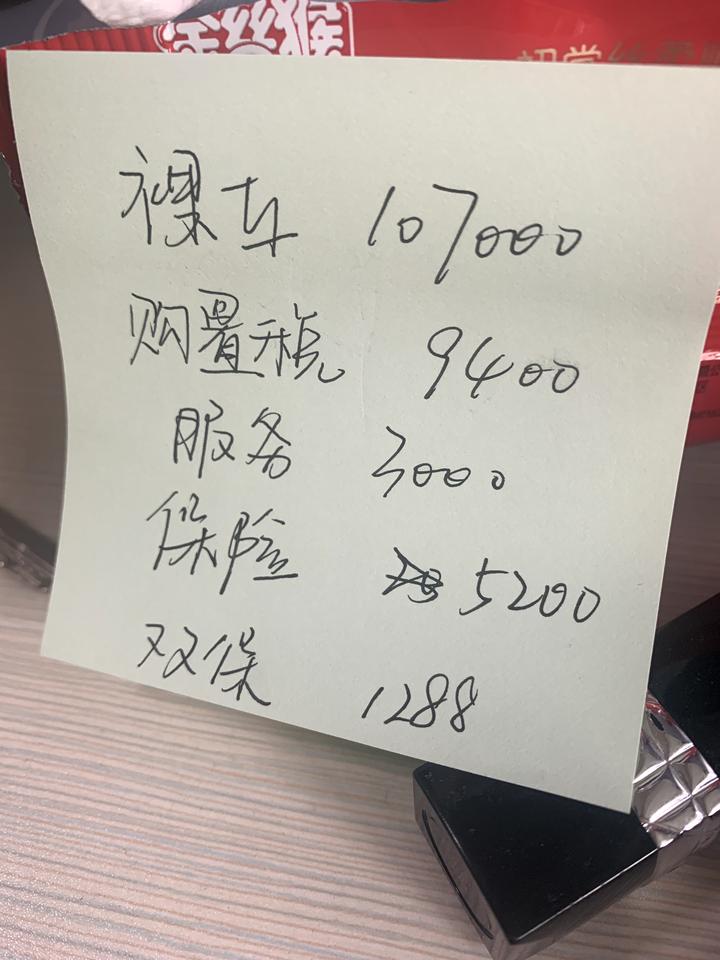 金丝猴
裸车 107000
购置税 9400
服务 3000
保险 5200
双保 1288